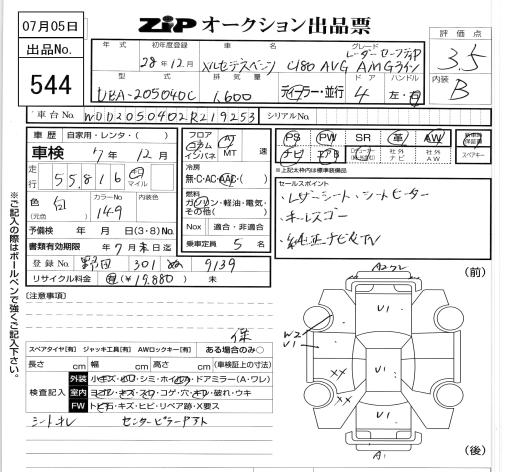 07月05日
ZIP オークション出品票
評価点
出品No.
544
年式 初年度登録 車名 グレード
28年12月 メルセデスベンツ C180 AVG レーダーセーフティP AMGライン
3.5
型式 排気量 ドア ハンドル
DBA-205040C 1,600 ディーラー・並行 4 左・右
内装
B
車台No. WDD2050402R219253 シリアルNo.
車歴 自家用・レンタ( )
車検 7年12月
走行 55,816 km マイル
色(元色) 白 カラーNo 149 内装色
予備検 年 月 日(3・8)No.
書類有効期限 7月末日迄
登録No. 野田 301 ぬ 9139
リサイクル料金 有(¥19,880) 未
フロア コラム インパネ AT MT 速
冷房 無・C・AC・AAC( )
燃料 ガソリン・軽油・電気・その他( )
Nox 適合・非適合
乗車定員 5名
PS PW SR 革 AW
ナビ エアB 社外ナビ 社外AW
スペアキー
※上記太枠内は標準装備品
セールスポイント
・レザーシート・シートヒーター
・キーレスゴー
・純正ナビTV
【注意事項】
保
スペアタイヤ【有】 ジャッキ工具【有】 AWロックキー【有】 ある場合のみ○
長さ cm 幅 cm 高さ cm (車検証上の寸法)
検査記入
外装 小キズ・凹・シミ・ホイル・ドアミラー(A・ワレ)
室内 ヨゴレ・キズ・スレ・コゲ・穴・キレ・破れ・ウキ
FW トビ石・キズ・ヒビ・リペア跡・X要ス
シートスレ センターピラー
※ご記入の際はボールペンで強くご記入下さい。
(前)
A2
U1
W2
U1
U1
XX
XX
U1
A1
(後)